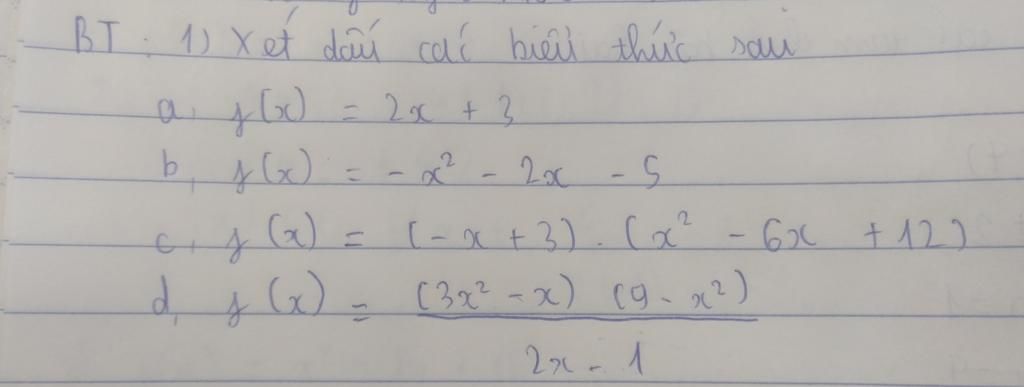 BT : 1) Xét dấu các biểu thức sau
a, f(x) = 2x + 3
b, f(x) = - x² - 2x - 5
c, f(x) = (-x + 3) . (x² - 6x + 12)
d, f(x) = (3x² - x) (9 - x²)
2x - 1